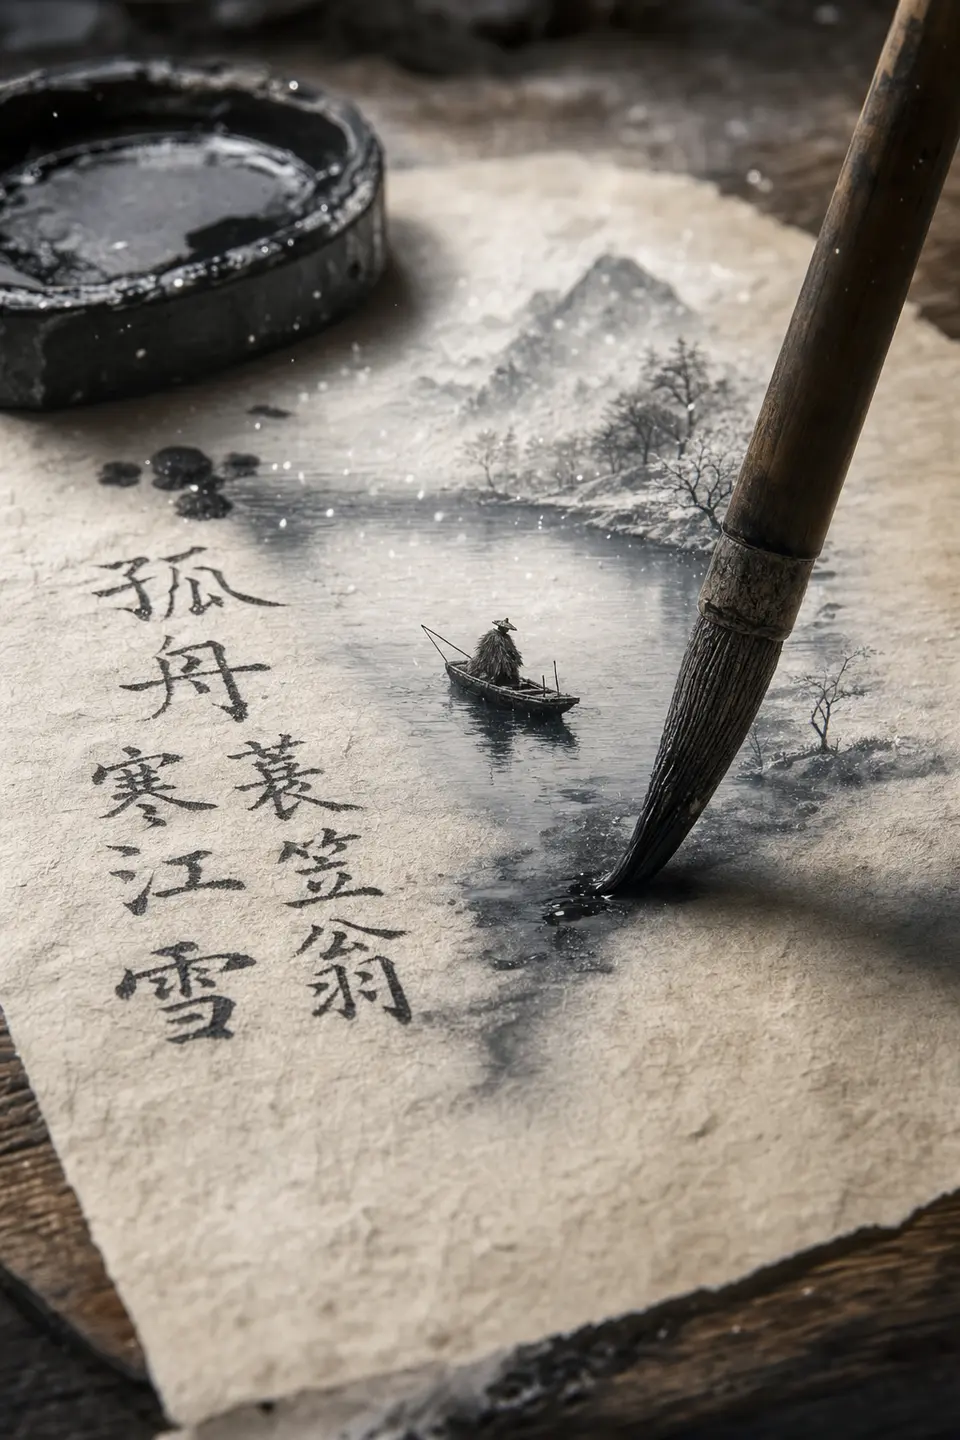 孤舟
蓑笠翁
寒江雪